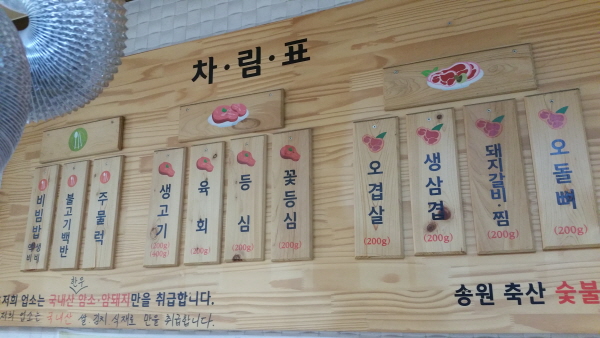 차·림·표
비빔밥
불고기백반
주물럭
생고기
(200g)
(400g)
육회
(200g)
등심
(200g)
꽃등심
(200g)
오겹살
(200g)
생삼겹
(200g)
돼지갈비·찜
(200g)
오돌뼈
(200g)
한우
저희 업소는 국내산 암소·암돼지만을 취급합니다.
저희 업소는 국내산 쌀 김치 식재로 만을 취급합니다.
송원 축산 숯불